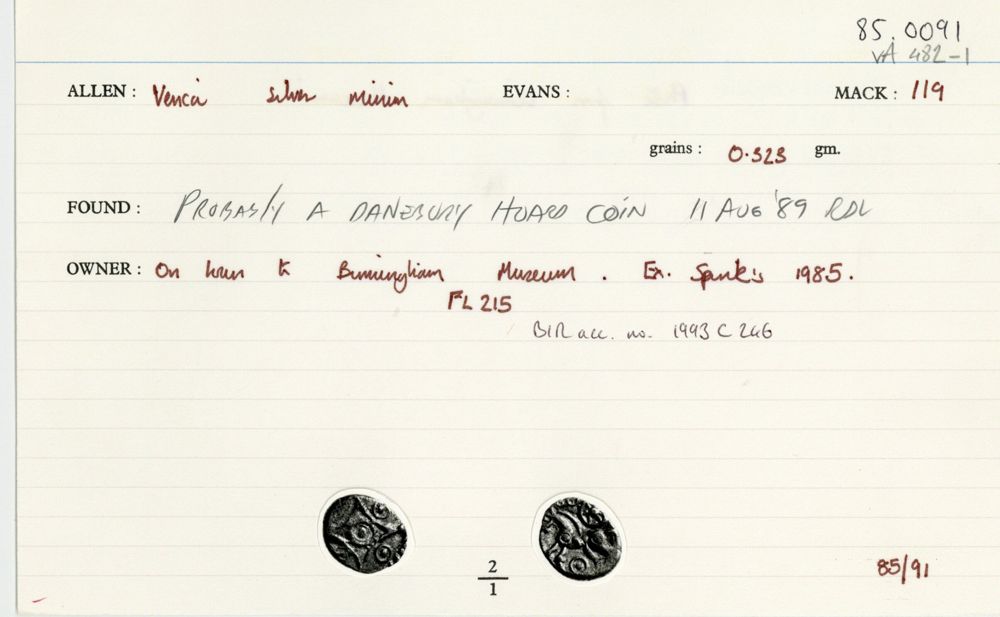 85.0091
VA 482-1
ALLEN : Verica silver minim EVANS : MACK : 119
grains : 0.323 gm.
FOUND : PROBABLY A DANEBURY HOARD COIN 11 AUG '89 RDL
OWNER : On loan to Birmingham Museum. Ex. Spink's 1985.
FL 215
BIR acc. no. 1993 C 246
2
1
85/91